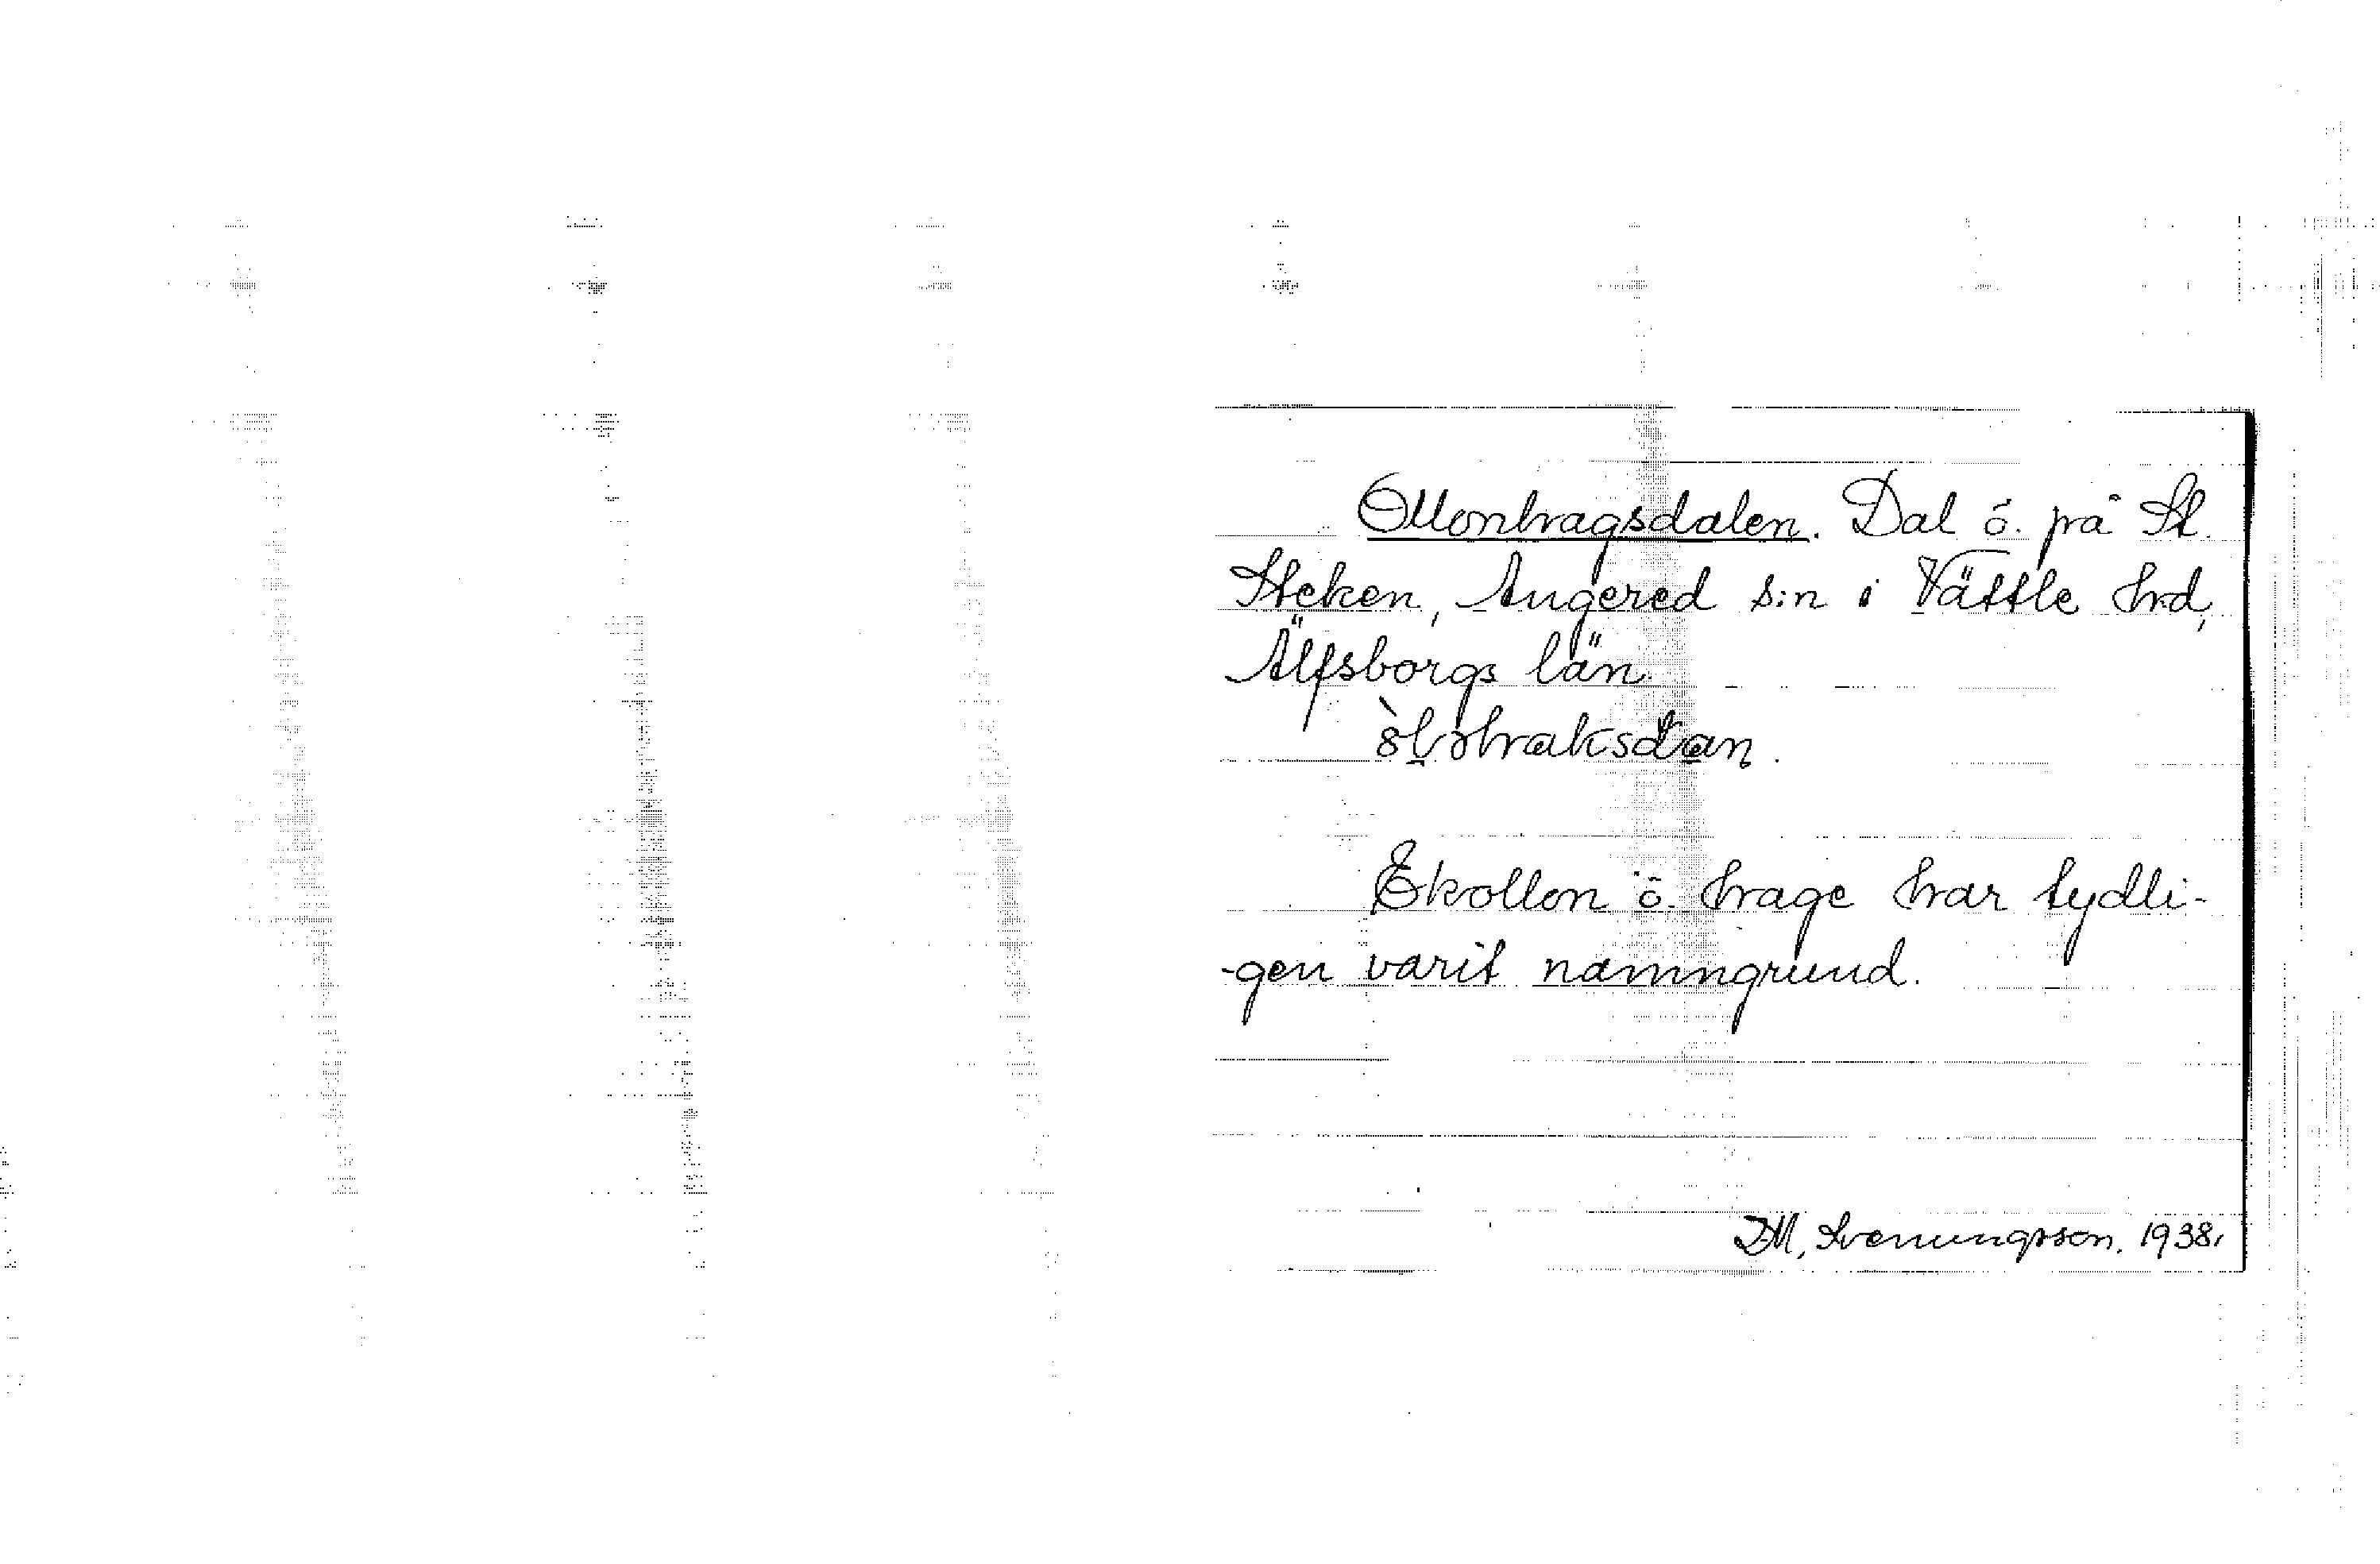 Ollonhagsdalen. Dal ö. på St.
Steken, Angered s:n i Vättle hrd,
Älfsborgs län.
Ekollon o. hage har tydli-
-gen varit namngrund.
D.M. Svenungsson. 1938.